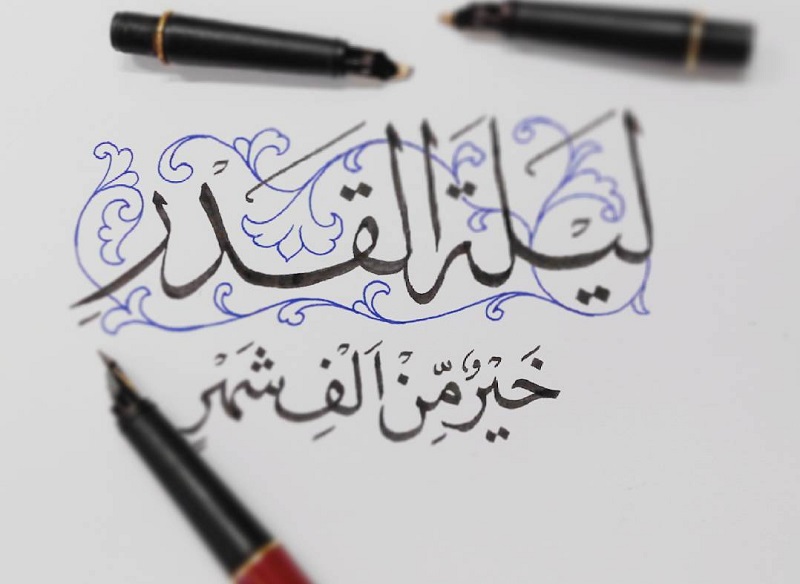 لَيْلَةُ الْقَدْرِ
خَيْرٌ مِّنْ اَلْفِ شَهْرٍ